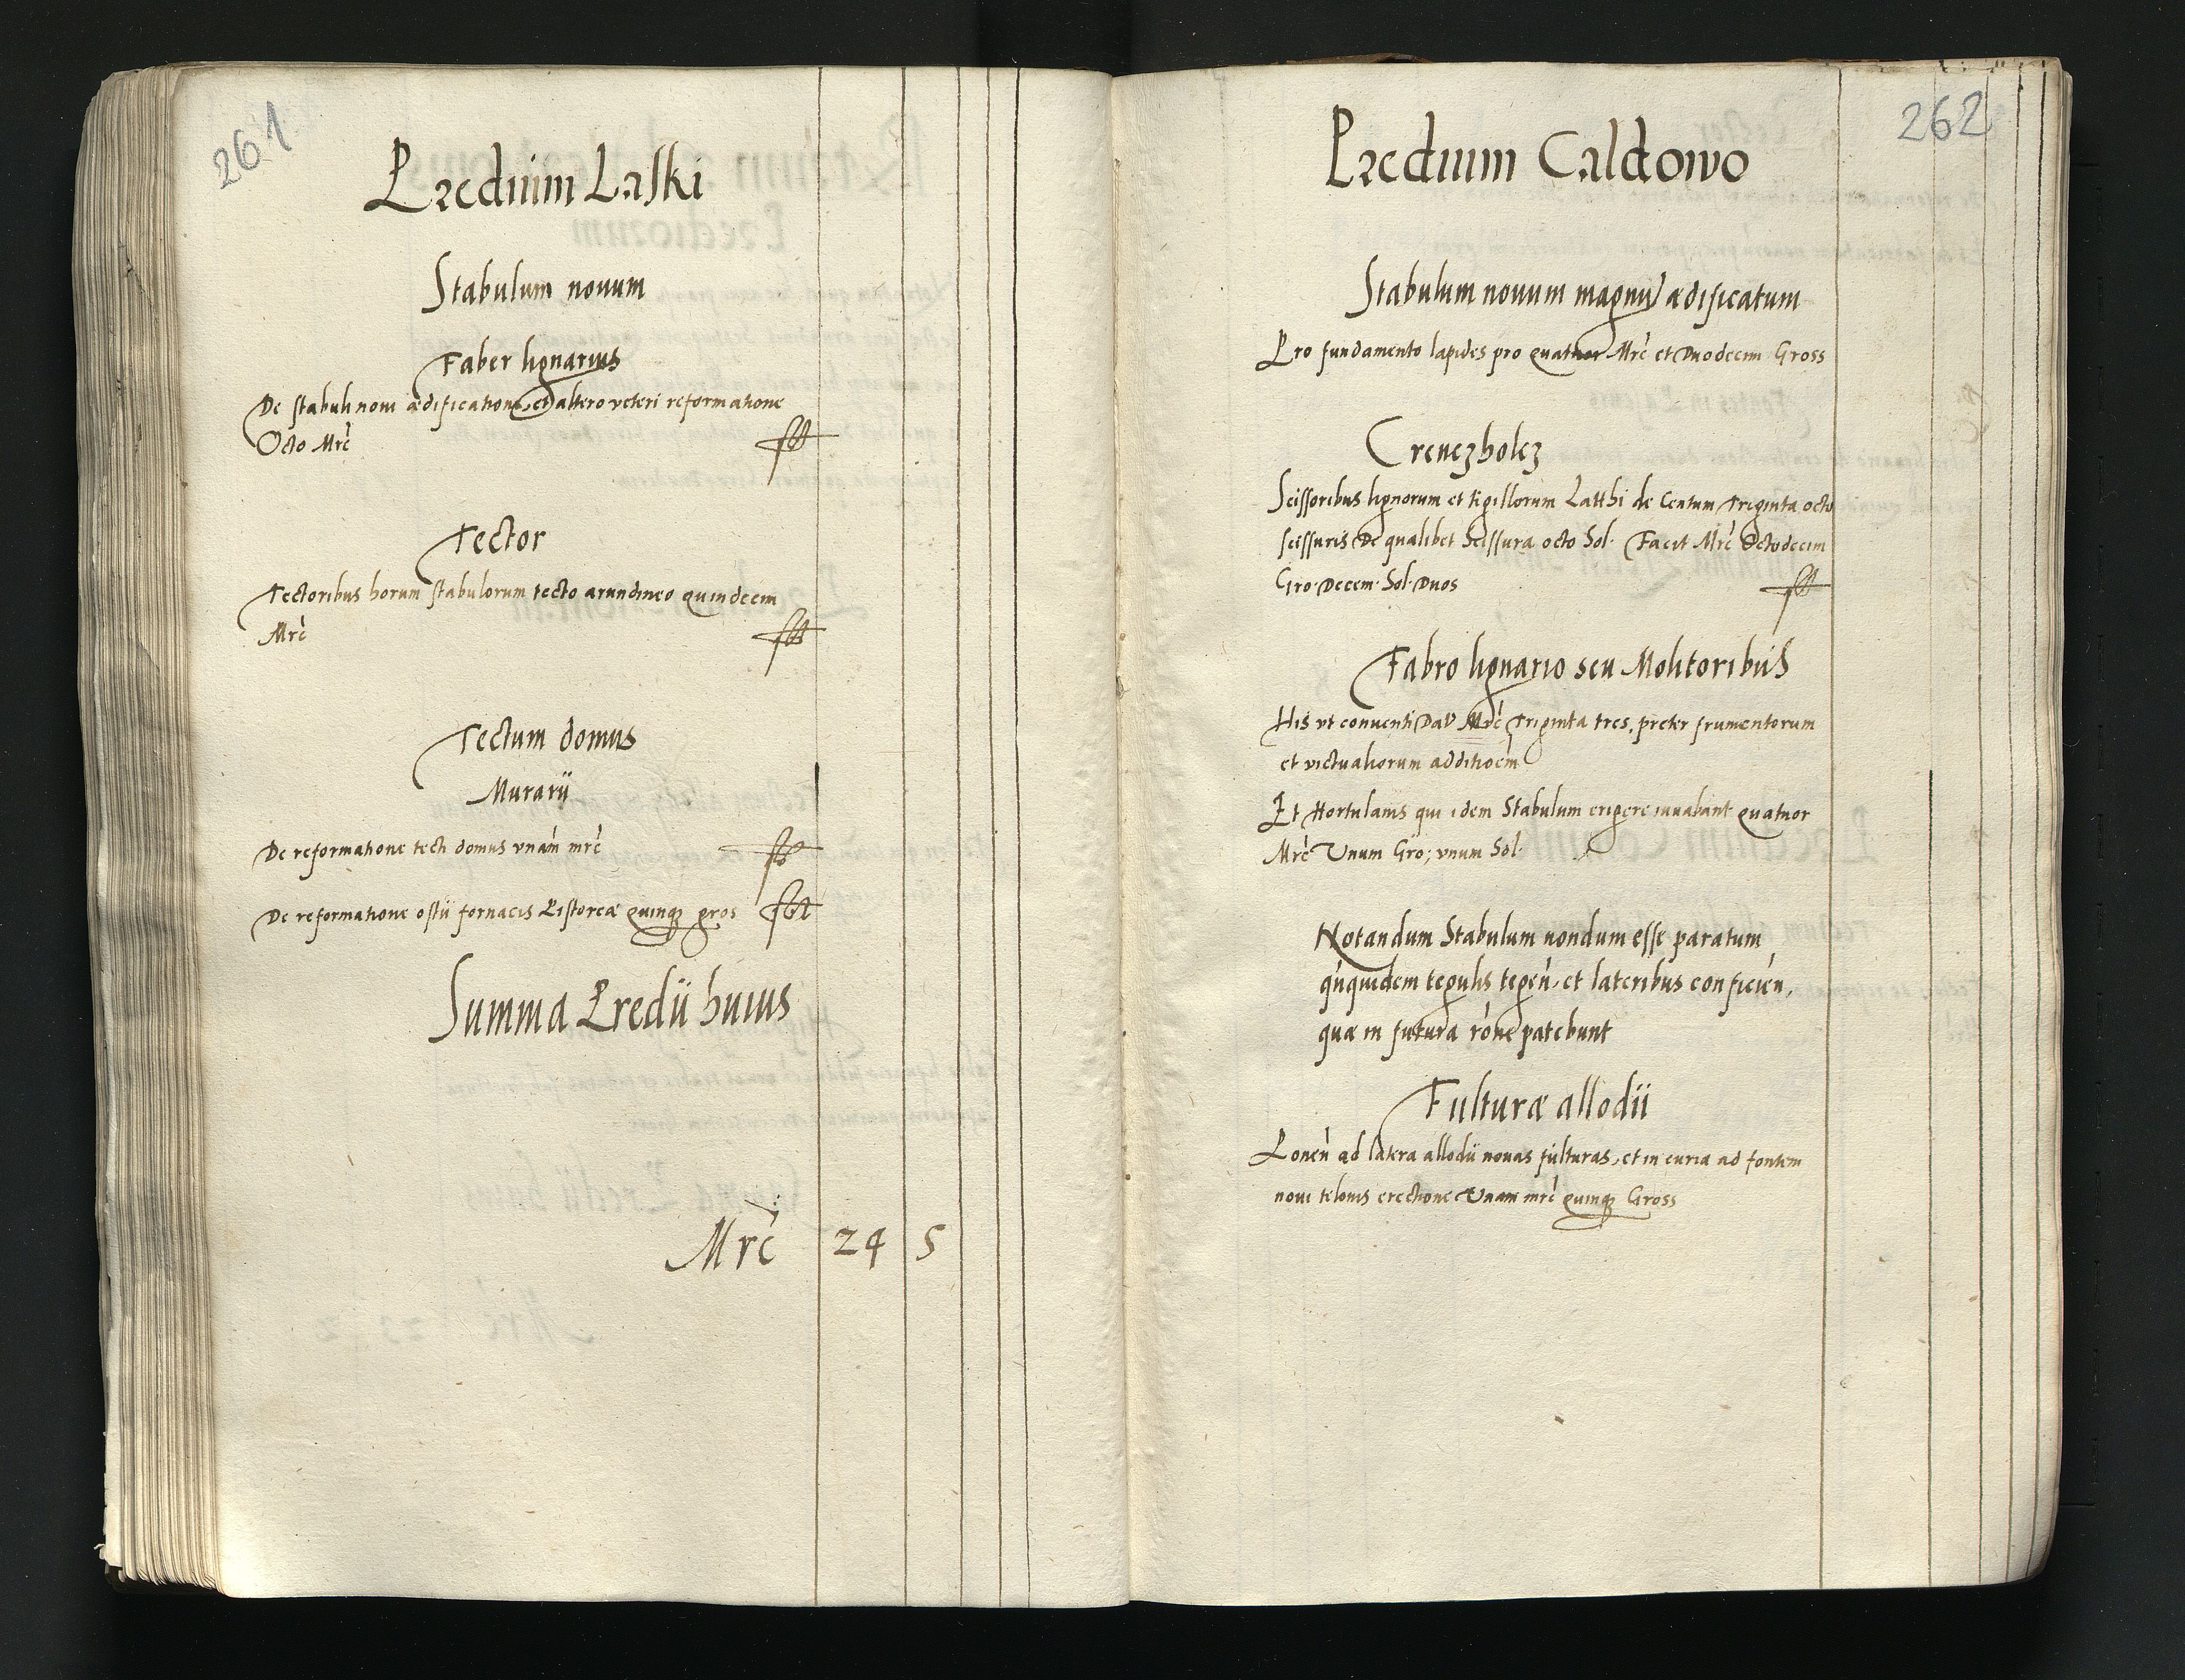 261
Prædium Laski
Stabulum nouum
Faber lignarius
De stabuli noui ædificatione, et altero veteri reformatione
Octo Mrc
Tector
Tectoribus horum stabulorum tecto arundineo quindecim
Mrc
Tectum domus
Murarii
De reformatione tecti domus vnam mrc
De reformatione ostii fornacis Pistoreæ quinqz gros
Summa Predii huius
Mrc 24 5
262
Prædium Caldowo
Stabulum nouum ædificatum
Pro fundamento lapides pro quatuor Mrc et Duodecim Gross
Creuczholcz
Scissoribus lignorum et tigillorum Latthi de Centum Triginta octo
scissuris De qualibet Scissura octo Sol. Facit Mrc Octodecim
Gro Decem Sol Duos
Fabro lignario seu Molitoribus
His vt conuenti Mrc Triginta tres, preter frumentorum
et victualiorum additioem
Et Hortulanis qui idem Stabulum erigere iuuabant quatuor
Mrc Unum Gro; vnum Sol
Notandum Stabulum nondum esse paratum
tegulis tegen, et lateribus conficien,
quæ in futura rone patebunt
Fulturæ allodii
Ponen ad latera allodii nouas fulturas, et in curia ad fontem
noui telonis erectione Vnam mrc quinqz Gross